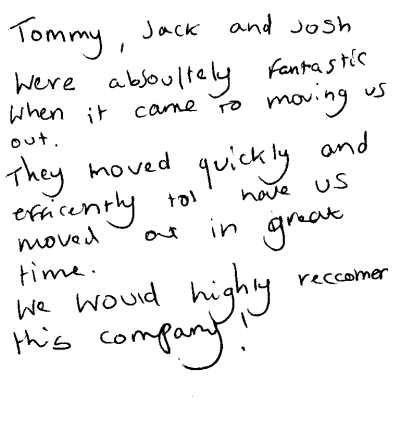 Tommy, Jack and Josh
were absoultely fantastic
when it came to moving us
out.
They moved quickly and
efficently to have us
moved out in great
time.
We would highly reccomer
this company!